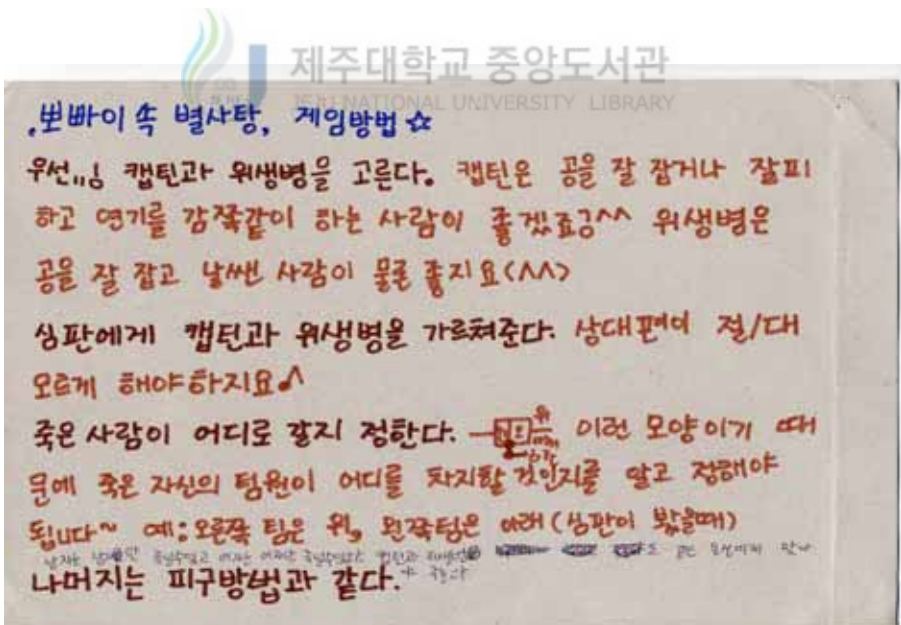 제주대학교 중앙도서관
JEJU NATIONAL UNIVERSITY LIBRARY
.뽀빠이 속 별사탕, 게임방법☆
우선,,, 캡틴과 위생병을 고른다. 캡틴은 공을 잘 잡거나 잘피
하고 연기를 감쪽같이 하는 사람이 좋겠죠?^^ 위생병은
공을 잘 잡고 날쌘 사람이 물론 좋지요(^^)
심판에게 캡틴과 위생병을 가르쳐준다. 상대편이 절/대
모르게 해야하지요
죽은 사람이 어디로 갈지 정한다. 위 이런 모양이기 때
문에 죽은 자신의 팀원이 어디를 차지할 것인지를 알고 정해야
됩니다~ 예: 오른쪽 팀은 위, 왼쪽팀은 아래 (심판이 봤을때)
남자는 여자는 캡틴과
나머지는 피구방법과 같다.